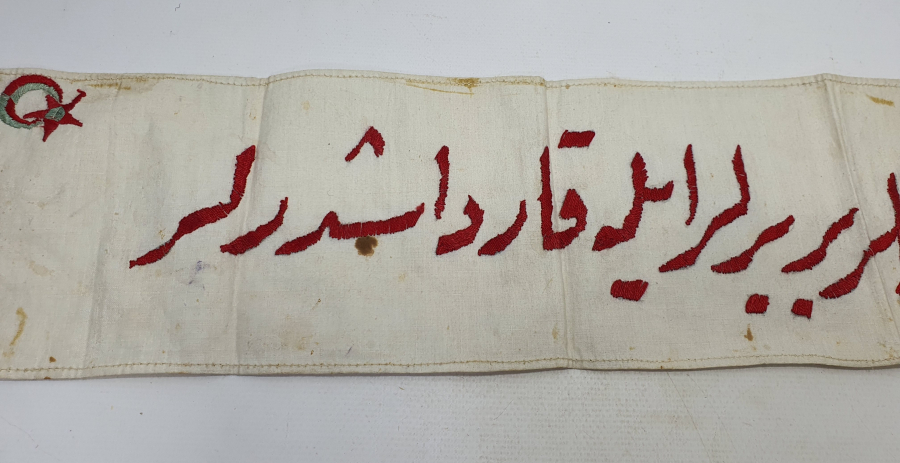 بربرلر ایله قارداشدرلر